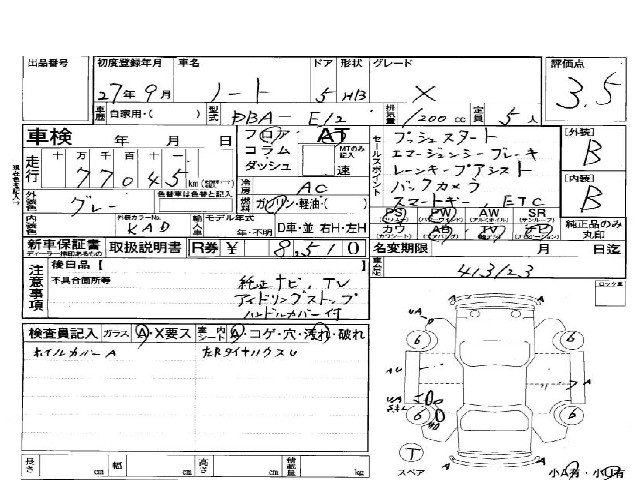 出品番号
初度登録年月 車名 ドア 形状 グレード 評価点
27年9月 ノート 5 H/B X 3.5
車歴 自家用・( ) 型式 DBA- E12 排気量 1200cc 定員 5人
車検 年 月 日
フロア AT
コラム MTのみ記入
ダッシュ 速
走行 十 万 千 百 十 一
77045 km
セールスポイント
プッシュスタート
エマージェンシーブレーキ
レーンキープアシスト
バックカメラ
スマートキー, ETC
[外装]
B
[内装]
B
冷房 AC
外装色 グレー 色替車は色替と記入
燃料 ガソリン・軽油・( )
PS PW AW SR
カワ AB TV ナビ
純正品のみ丸印
内装色 外装カラーNo. KAD
輸入車 モデル年式 年・不明 D車・並 右H・左H
新車保証書 取扱説明書 R券 ¥ 8,510
名変期限 月 日迄
車台No. 413123
注意事項
後日品 [
不具合箇所等
純正ナビ, TV
アイドリングストップ
ハンドルカバー付
ロック車
検査員記入 ガラス A・X要ス 室内シート A・コゲ・穴・汚れ・破れ
ホイルカバーA 左RタイヤハウスU
長さ cm 幅 cm 高さ cm 積載量 kg
A
UA
6 6
AU A
UA
6 6
T
スペア
A A
小A有・小U有